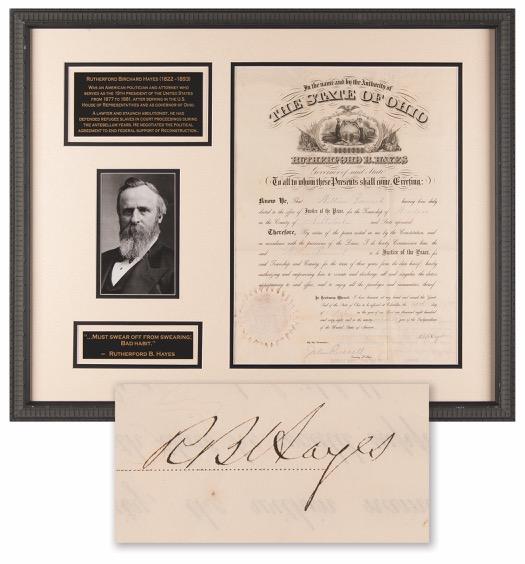 RUTHERFORD BIRCHARD HAYES (1822 -1893)
WAS AN AMERICAN POLITICIAN AND ATTORNEY WHO
SERVED AS THE 19TH PRESIDENT OF THE UNITED STATES
FROM 1877 TO 1881, AFTER SERVING IN THE U.S.
HOUSE OF REPRESENTATIVES AND AS GOVERNOR OF OHIO.
A LAWYER AND STAUNCH ABOLITIONIST, HE HAS
DEFENDED REFUGEE SLAVES IN COURT PROCEEDINGS DURING
THE ANTEBELLUM YEARS. HE NEGOTIATED THE POLITICAL
AGREEMENT TO END FEDERAL SUPPORT OF RECONSTRUCTION.
"...MUST SWEAR OFF FROM SWEARING;
BAD HABIT."
– RUTHERFORD B. HAYES
In the name and by the Authority of
THE STATE OF OHIO
RUTHERFORD B. HAYES
Governor of said State
To all to whom these Presents shall come, Greeting:
Know Ye, That William having been duly
elected to the office of Justice of the Peace, for the Township of
in the County of and State aforesaid
Therefore, By virtue of the power vested in me by the Constitution, and
in accordance with the provisions of the Laws, I do hereby Commission him, the
said to be Justice of the Peace, for
said Township and County for the term of three years from its date hereof; hereby
authorizing and empowering him to execute and discharge, all and singular, the duties
appertaining to said office, and to enjoy all the privileges and immunities thereof.
In Testimony Whereof, I have hereunto set my hand and caused the Great
Seal of the State of Ohio to be affixed at Columbus, the day
of in the year of our Lord one thousand eight hundred
and sixty and in the year of the Independence
of the United States of America.
R B Hayes